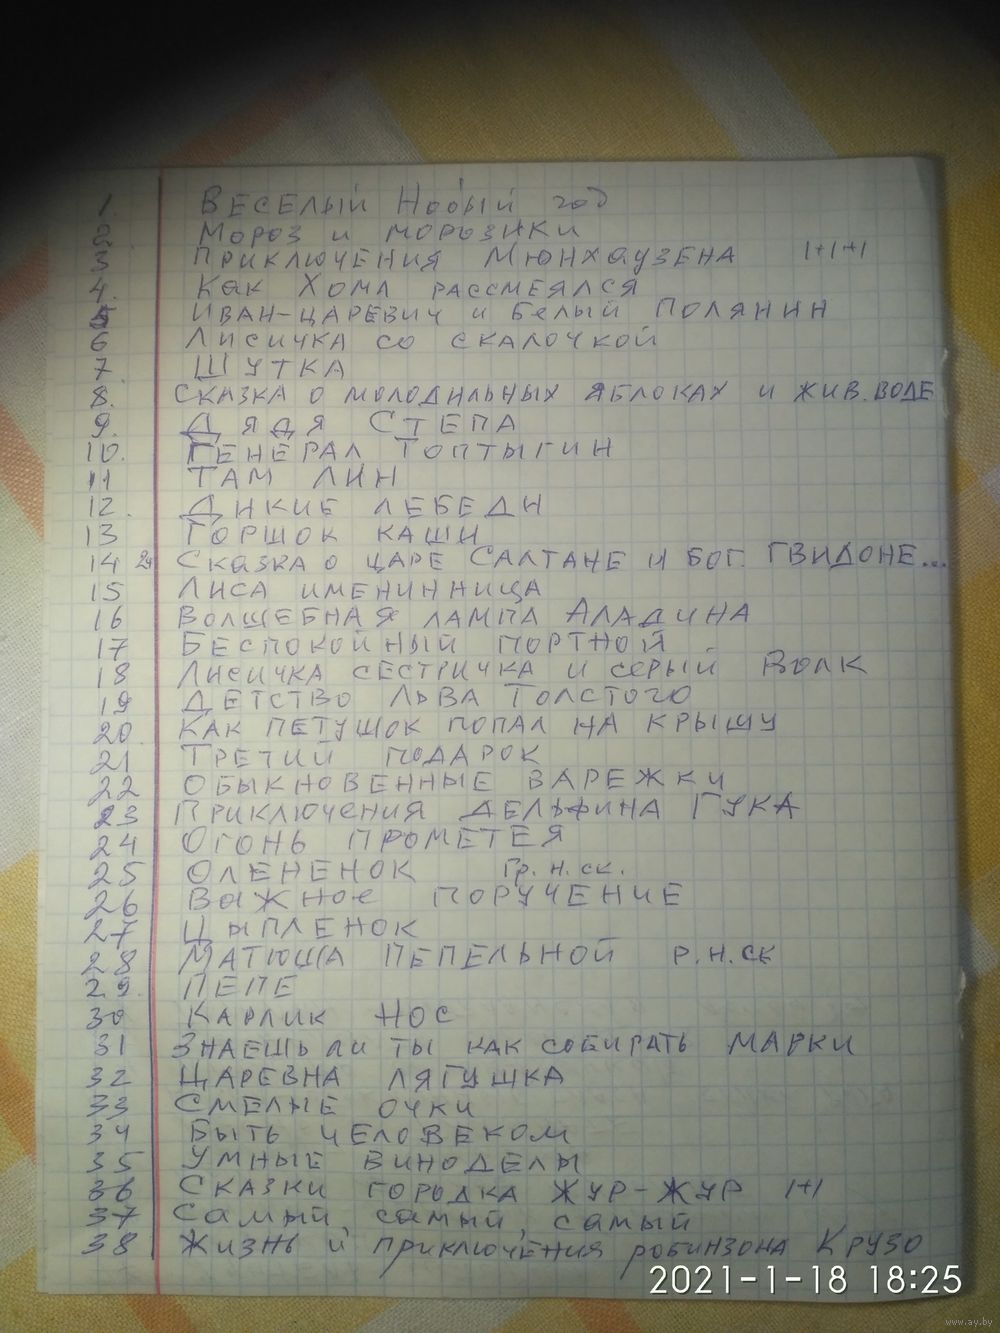 1. ВЕСЕЛЫЙ НОВЫЙ год
2. МОРОЗ И МОРОЗИКИ
3 ПРИКЛЮЧЕНИЯ МЮНХАУЗЕНА 1+1+1
4. КАК ХОМА РАССМЕЯЛСЯ
5 ИВАН-ЦАРЕВИЧ И БЕЛЫЙ ПОЛЯНИН
6 ЛИСИЧКА СО СКАЛОЧКОЙ
7. ШУТКА
8. СКАЗКА О МОЛОДИЛЬНЫХ ЯБЛОКАХ И ЖИВ. ВОДЕ
9. ДЯДЯ СТЕПА
10. ГЕНЕРАЛ ТОПТЫГИН
11 ТАМ ЛИН
12. ДИКИЕ ЛЕБЕДИ
13 ГОРШОК КАШИ
14 СКАЗКА О ЦАРЕ САЛТАНЕ И БОГ. ГВИДОНЕ...
15 ЛИСА ИМЕНИННИЦА
16 ВОЛШЕБНАЯ ЛАМПА АЛАДИНА
17 БЕСПОКОЙНЫЙ ПОРТНОЙ
18 ЛИСИЧКА СЕСТРИЧКА И СЕРЫЙ ВОЛК
19 ДЕТСТВО ЛЬВА ТОЛСТОГО
20. КАК ПЕТУШОК ПОПАЛ НА КРЫШУ
21 ТРЕТИЙ ПОДАРОК
22 ОБЫКНОВЕННЫЕ ВАРЕЖКИ
23 ПРИКЛЮЧЕНИЯ ДЕЛЬФИНА ГУКА
24 ОГОНЬ ПРОМЕТЕЯ
25 ОЛЕНЕНОК Гр. Н. СК.
26 ВАЖНОЕ ПОРУЧЕНИЕ
27 ЦЫПЛЕНОК
28 МАТЮША ПЕПЕЛЬНОЙ Р.Н.СК
29. ПЕПЕ
30 КАРЛИК НОС
31 ЗНАЕШЬ ЛИ ТЫ КАК СОБИРАТЬ МАРКИ
32 ЦАРЕВНА ЛЯГУШКА
33 СМЕЛЫЕ ОЧКИ
34 БЫТЬ ЧЕЛОВЕКОМ
35 УМНЫЕ ВИНОДЕЛЫ
36 СКАЗКИ ГОРОДКА ЖУР-ЖУР 1+1
37 САМЫЙ, САМЫЙ, САМЫЙ
38 ЖИЗНЬ И ПРИКЛЮЧЕНИЯ РОБИНЗОНА КРУЗО
2021-1-18 18:25
www.ay.by